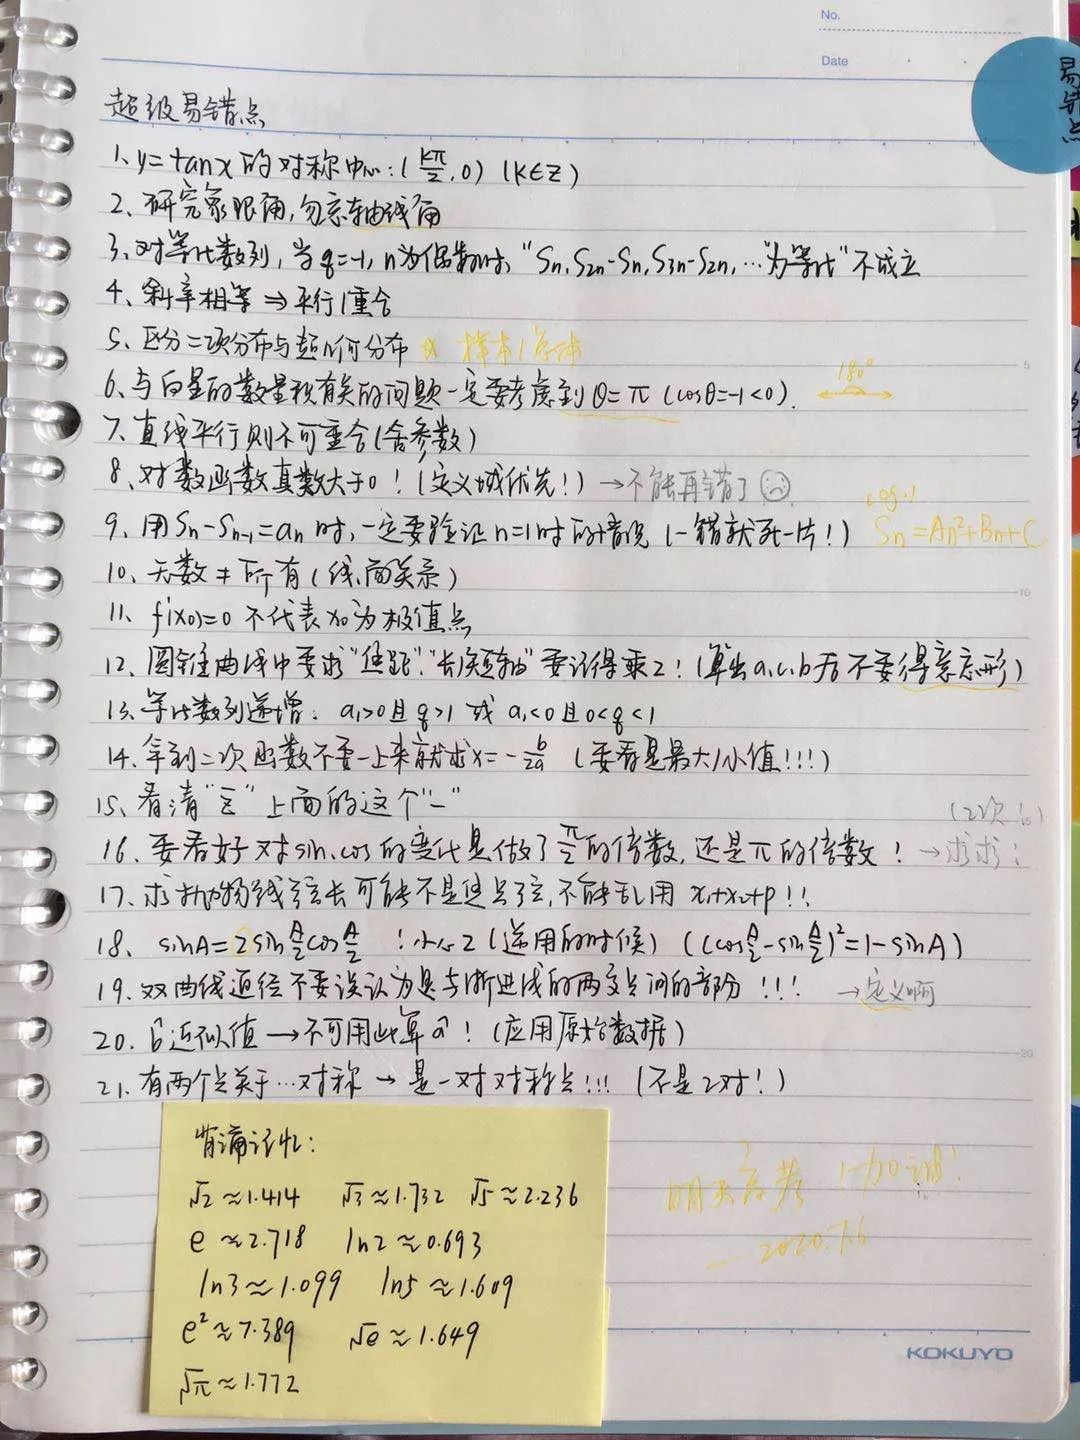 No.
Date
易错点
超级易错点
1、y=tanx的对称中心:(kπ/2,0) (k∈Z)
2、研究象限角,勿忘轴线角
3、对等比数列,当q=-1,n为偶数时,"Sn,S2n-Sn,S3n-S2n,…为等比"不成立
4、斜率相等⇒平行/重合
5、区分二项分布与超几何分布 样本/总体
6、与向量的数量积有关的问题一定要考虑到θ=π(cosθ=-1<0). 180°
7、直线平行则不可重合(含参数)
8、对数函数真数大于0!(定义域优先!)→不能再错了
9、用Sn-Sn-1=an时,一定要验证n=1时的情况(一错就死一片!) Sn=An²+Bn+C
10、无数≠所有(线、面关系)
11、f'(x0)=0不代表x0为极值点
12、圆锥曲线中要求"焦距""长/短轴"要记得乘2!(算出a,c,b后不要得意忘形)
13、等比数列递增:a1>0且q>1或a1<0且0<q<1
14、拿到二次函数不要一上来就求x=-b/2a (要看是最大/小值!!!)
15、看清"z̄"上面的这个"-"
(2次!)
16、要看好对sin、cos的变化是做了π/2的倍数,还是π的倍数!→求求!
17、求抛物线弦长可能不是焦点弦,不能乱用x1+x2+p!!
18、sinA=2sinA/2cosA/2 !小心2(逆用的时候)((cosA/2-sinA/2)²=1-sinA)
19、双曲线通径不要误认为是与渐进线的两交点间的部分!!! →定义啊
20、b̂近似值→不可用此算â!(应用原始数据)
21、有两个点关于…对称→是一对对称点!!!(不是2对!)
背诵记忆:
√2≈1.414 √3≈1.732 √5≈2.236
e≈2.718 ln2≈0.693
ln3≈1.099 ln5≈1.609
e²≈7.389 √e≈1.649
√π≈1.772
明天高考 加油!
2020.7.6
KOKUYO